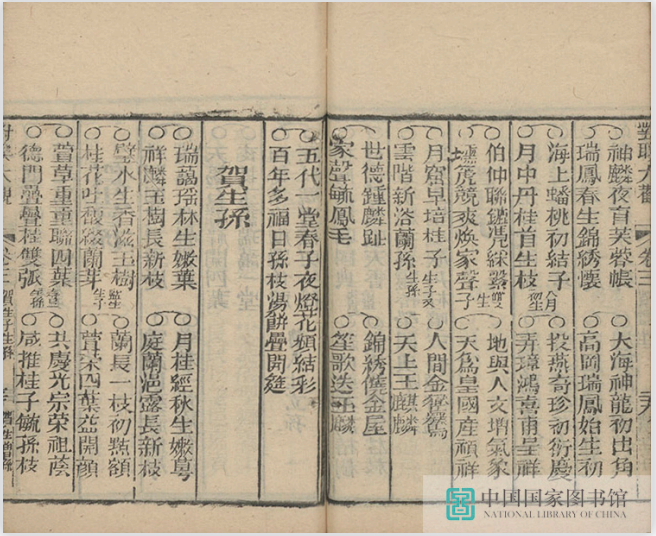 對聯大觀 卷三
神麟夜育芙蓉帳 大海神龍初出角
瑞鳳春生錦綉懷 高岡瑞鳳始生初
海上蟠桃初結子 投燕奇珍初衍慶
月中丹桂首生枝 八月初生 弄璋鴻喜甫呈祥
伯仲聯鑣 地與人文增氣象
競爽煥家聲 生子 天為皇國產禎祥
月窟早培桂子 人間金鸑鷟
雲階新浴蘭孫 生孫 天上玉麒麟
世德鍾麟趾 錦綉僊金屋
家聲毓鳳毛 笙歌送玉麟
五代一堂春子夜燈花頻結彩
百年多福日孫枝湯餅疊開筵
賀生孫
瑞藹瑤林生嫩葉 月桂經秋生嫩蕚
祥麟玉樹長新枝 庭蘭浥露長新枝
璧水生香滋玉樹 蘭長一枝初點額
桂花吐馥綴蘭芽 生子 蓂榮四葉益開顔
萱草重重聯四葉 共慶光宗榮祖蔭
德門疊疊桂雙弧 咸推桂子毓孫枝
對聯大觀 卷三 賀生子生孫
中国国家图书馆
NATIONAL LIBRARY OF CHINA